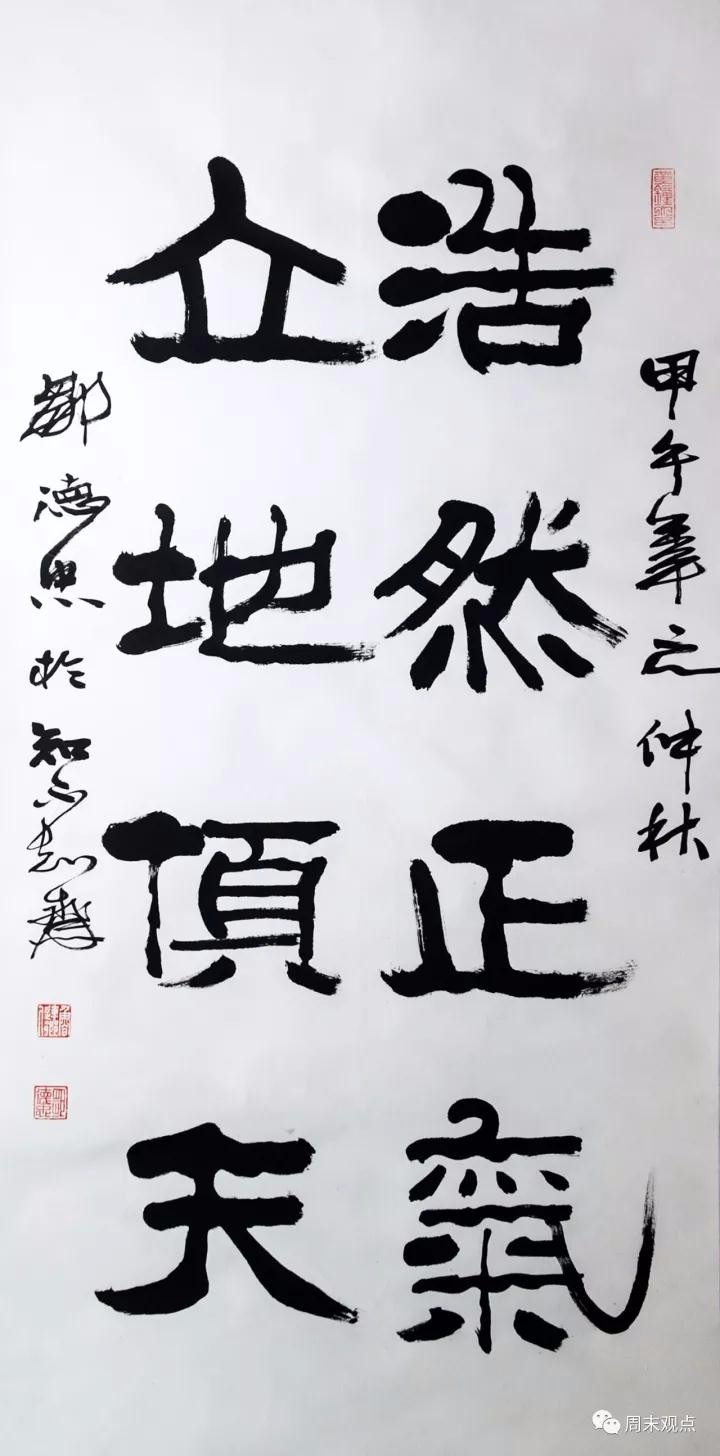 甲午年之仲秋
浩然正氣
立地頂天
鄒德忠於知不知齋
周末观点